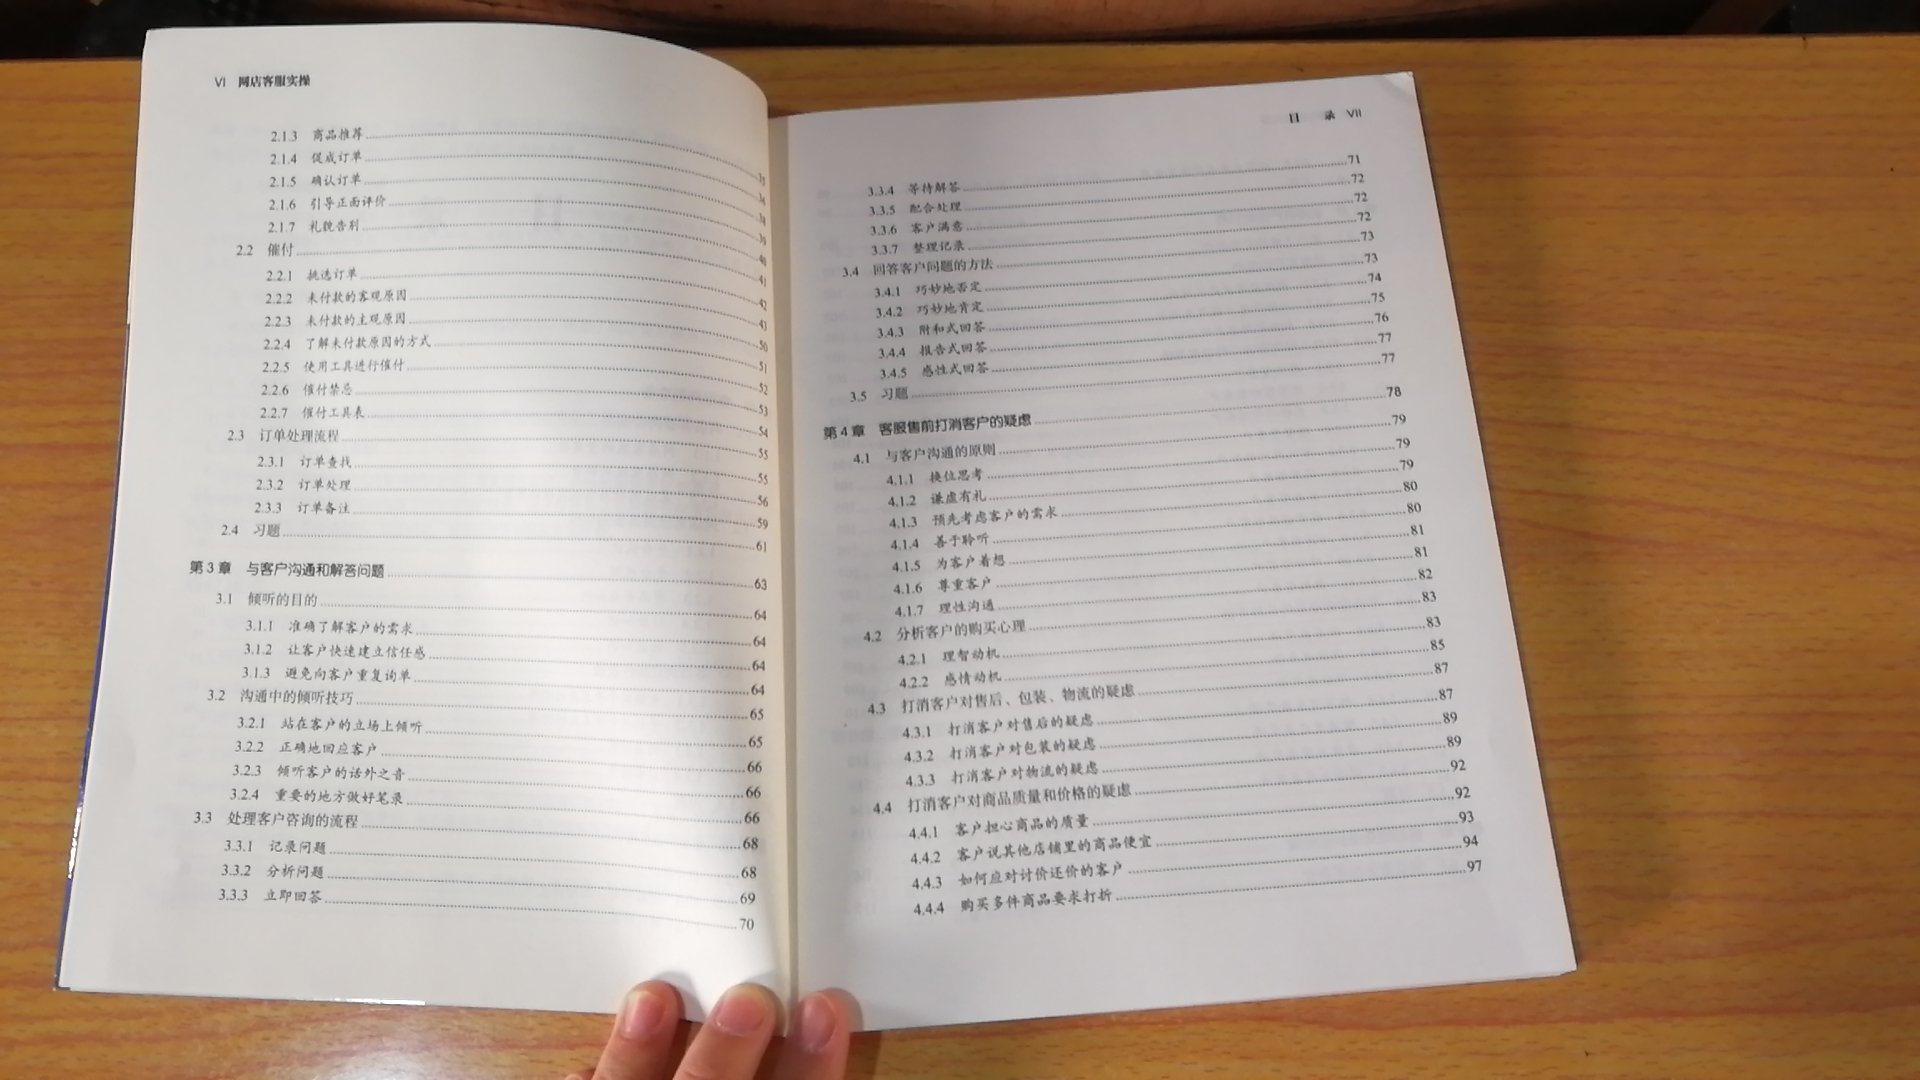 VI 网店客服实操
2.1.3 商品推荐 35
2.1.4 促成订单 36
2.1.5 确认订单 38
2.1.6 引导正面评价 39
2.1.7 礼貌告别 40
2.2 催付 41
2.2.1 挑选订单 42
2.2.2 未付款的客观原因 43
2.2.3 未付款的主观原因 50
2.2.4 了解未付款原因的方式 51
2.2.5 使用工具进行催付 52
2.2.6 催付禁忌 53
2.2.7 催付工具表 54
2.3 订单处理流程 55
2.3.1 订单查找 55
2.3.2 订单处理 56
2.3.3 订单备注 59
2.4 习题 61
第3章 与客户沟通和解答问题 63
3.1 倾听的目的 64
3.1.1 准确了解客户的需求 64
3.1.2 让客户快速建立信任感 64
3.1.3 避免向客户重复询单 64
3.2 沟通中的倾听技巧 65
3.2.1 站在客户的立场上倾听 65
3.2.2 正确地回应客户 66
3.2.3 倾听客户的话外之音 66
3.2.4 重要的地方做好笔录 66
3.3 处理客户咨询的流程 68
3.3.1 记录问题 68
3.3.2 分析问题 69
3.3.3 立即回答 70
目 录 VII
3.3.4 等待解答 71
3.3.5 配合处理 72
3.3.6 客户满意 72
3.3.7 整理记录 72
3.4 回答客户问题的方法 73
3.4.1 巧妙地否定 73
3.4.2 巧妙地肯定 74
3.4.3 附和式回答 75
3.4.4 报告式回答 76
3.4.5 感性式回答 77
3.5 习题 77
第4章 客服售前打消客户的疑虑 78
4.1 与客户沟通的原则 79
4.1.1 换位思考 79
4.1.2 谦虚有礼 79
4.1.3 预先考虑客户的需求 80
4.1.4 善于聆听 80
4.1.5 为客户着想 81
4.1.6 尊重客户 81
4.1.7 理性沟通 82
4.2 分析客户的购买心理 83
4.2.1 理智动机 83
4.2.2 感情动机 85
4.3 打消客户对售后、包装、物流的疑虑 87
4.3.1 打消客户对售后的疑虑 87
4.3.2 打消客户对包装的疑虑 89
4.3.3 打消客户对物流的疑虑 89
4.4 打消客户对商品质量和价格的疑虑 92
4.4.1 客户担心商品的质量 92
4.4.2 客户说其他店铺里的商品便宜 93
4.4.3 如何应对讨价还价的客户 94
4.4.4 购买多件商品要求打折 97